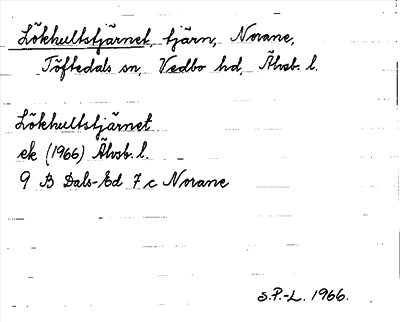 Lökhultstjärnet, tjärn, Norane,
Töftedals sn, Vedbo hd, Älvsb. l.
Lökhultstjärnet
ek (1966) Älvsb. l.
9 B Dals-Ed 7 c Norane
S.P.-L. 1966.